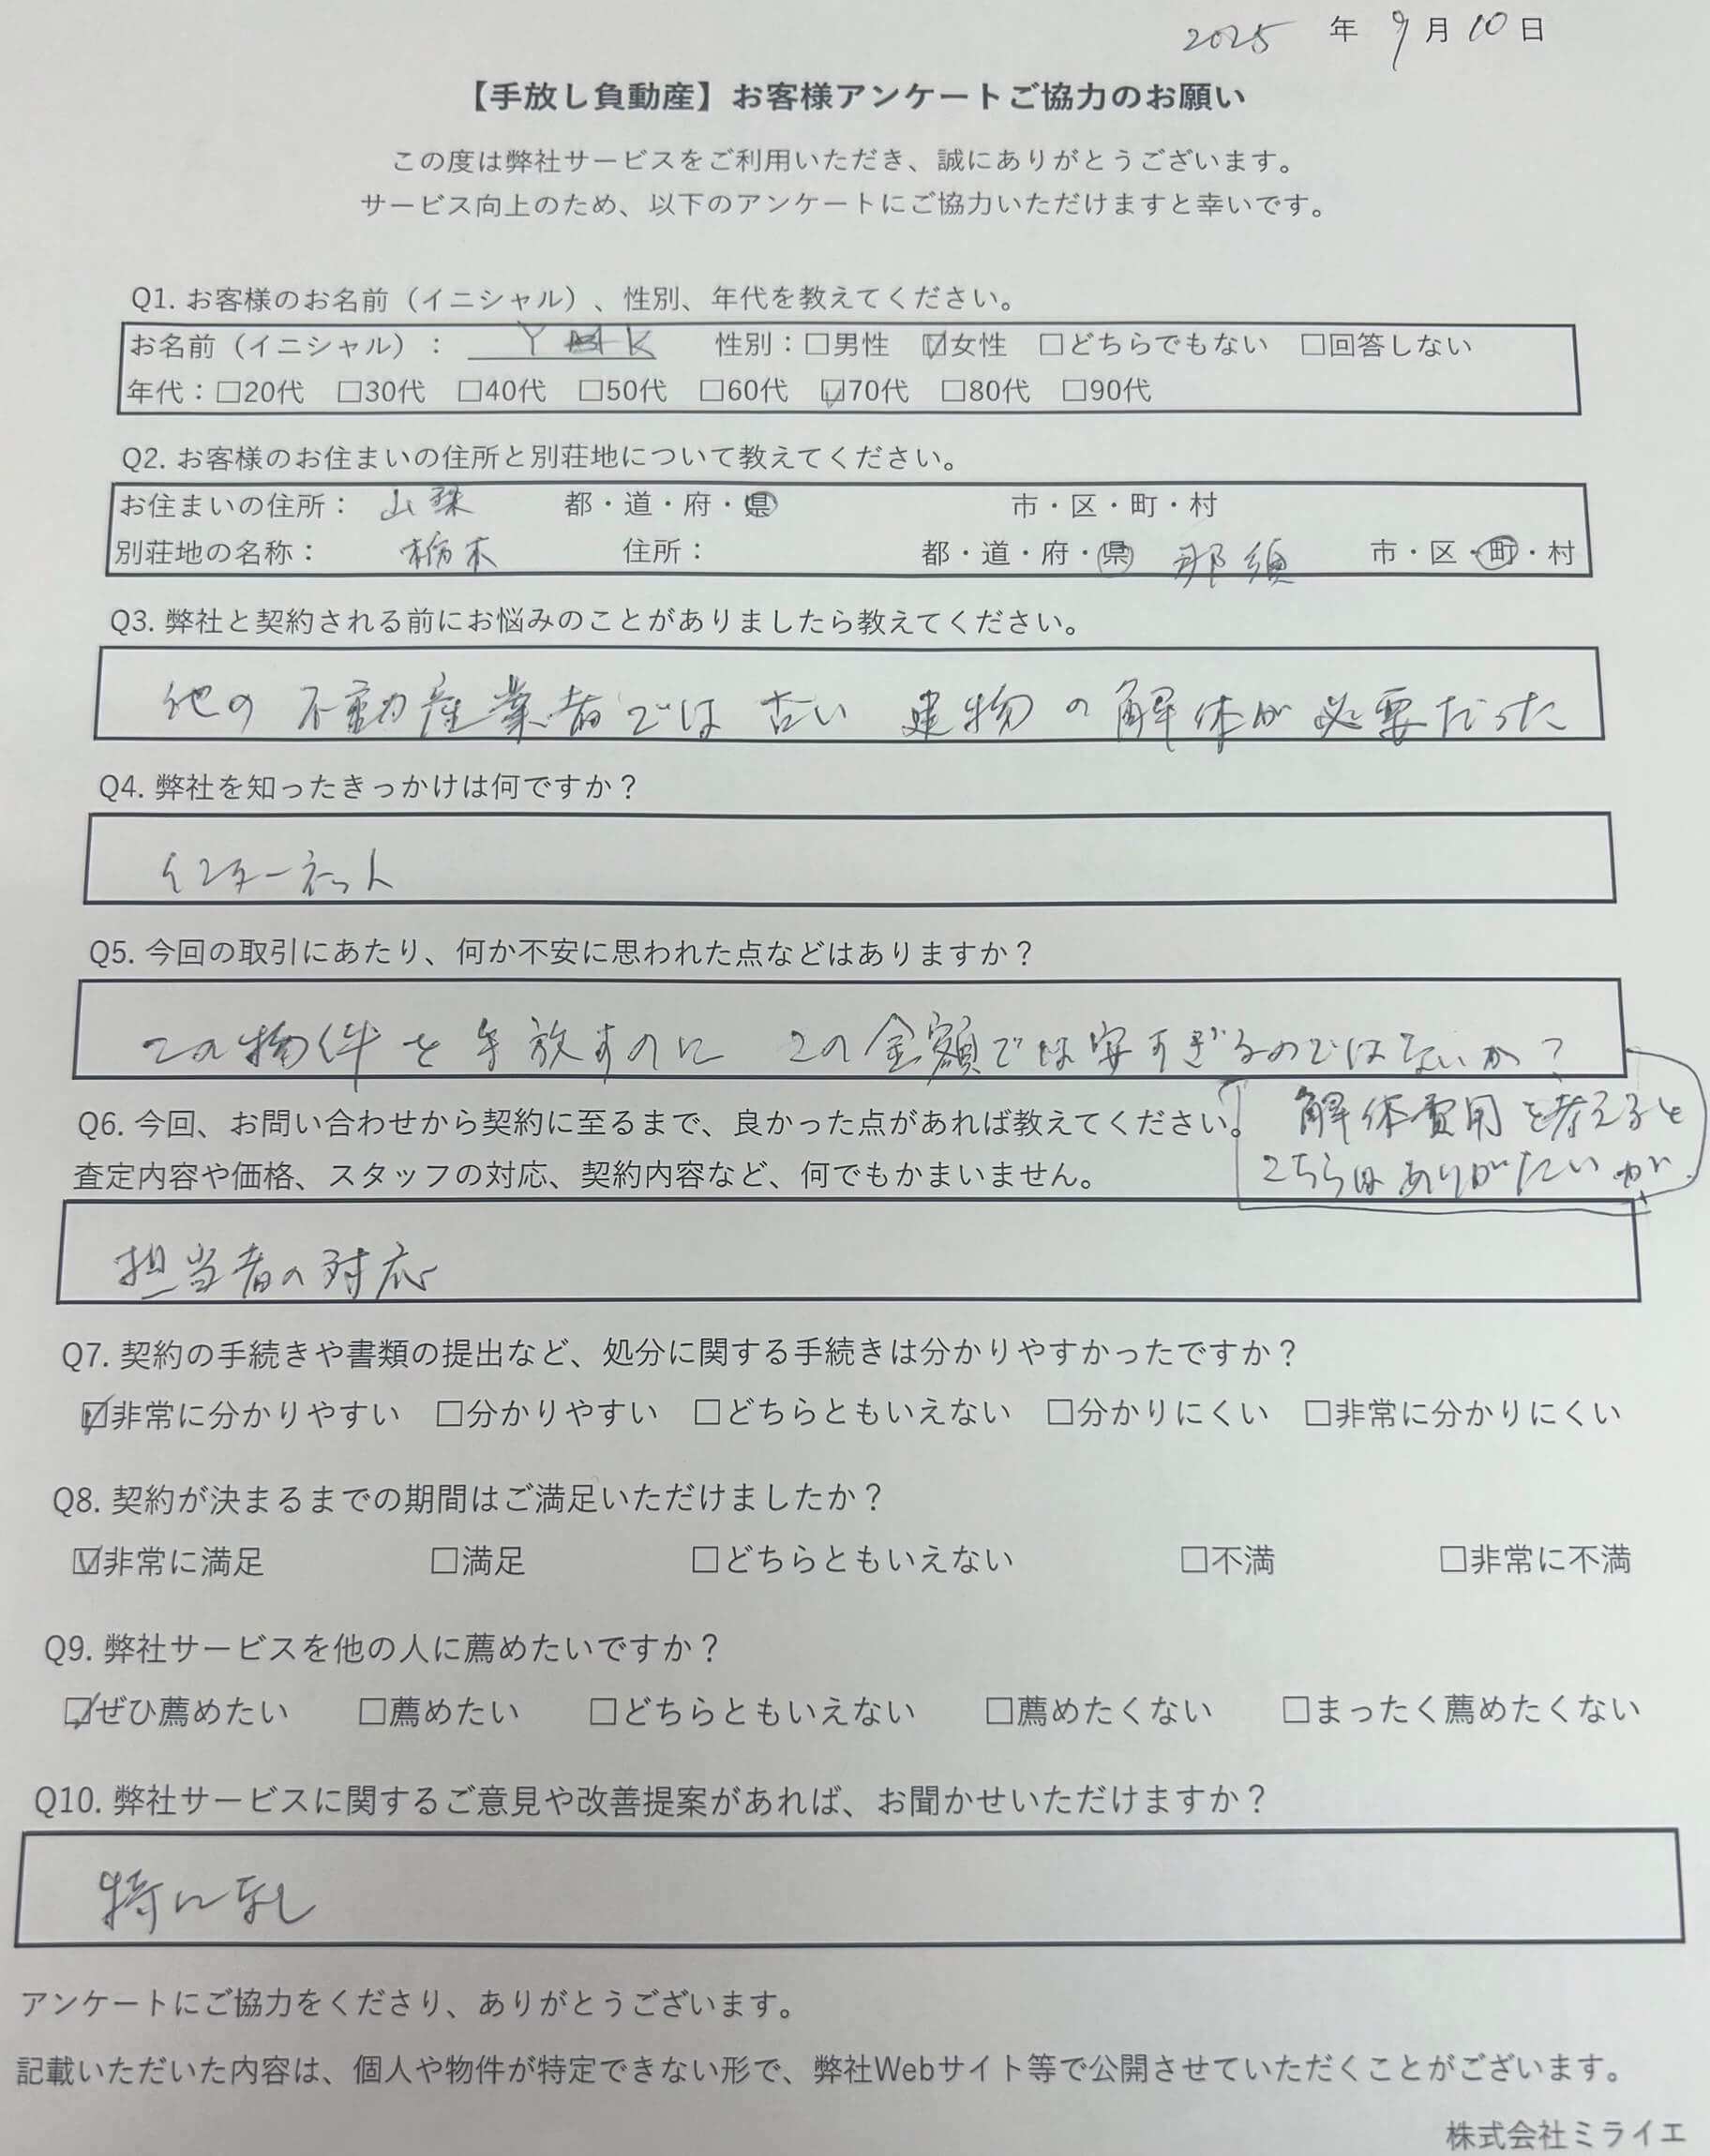 2025 年 9 月 10 日
【手放し負動産】お客様アンケートご協力のお願い
この度は弊社サービスをご利用いただき、誠にありがとうございます。
サービス向上のため、以下のアンケートにご協力いただけますと幸いです。
Q1. お客様のお名前（イニシャル）、性別、年代を教えてください。
お名前（イニシャル）： Y K 性別：□男性 ☑女性 □どちらでもない □回答しない
年代：□20代 □30代 □40代 □50代 □60代 ☑70代 □80代 □90代
Q2. お客様のお住まいの住所と別荘地について教えてください。
お住まいの住所： 山梨 都・道・府・県 市・区・町・村
別荘地の名称： 栃木 住所： 都・道・府・県 那須 市・区・町・村
Q3. 弊社と契約される前にお悩みのことがありましたら教えてください。
他の不動産業者では古い建物の解体が必要だった
Q4. 弊社を知ったきっかけは何ですか？
インターネット
Q5. 今回の取引にあたり、何か不安に思われた点などはありますか？
この物件を手放すのに この金額では安すぎるのではないか？
解体費用を考えると
こちらはありがたいが
Q6. 今回、お問い合わせから契約に至るまで、良かった点があれば教えてください。
査定内容や価格、スタッフの対応、契約内容など、何でもかまいません。
担当者の対応
Q7. 契約の手続きや書類の提出など、処分に関する手続きは分かりやすかったですか？
☑非常に分かりやすい □分かりやすい □どちらともいえない □分かりにくい □非常に分かりにくい
Q8. 契約が決まるまでの期間はご満足いただけましたか？
☑非常に満足 □満足 □どちらともいえない □不満 □非常に不満
Q9. 弊社サービスを他の人に薦めたいですか？
☑ぜひ薦めたい □薦めたい □どちらともいえない □薦めたくない □まったく薦めたくない
Q10. 弊社サービスに関するご意見や改善提案があれば、お聞かせいただけますか？
特になし
アンケートにご協力をくださり、ありがとうございます。
記載いただいた内容は、個人や物件が特定できない形で、弊社Webサイト等で公開させていただくことがございます。
株式会社ミライエ